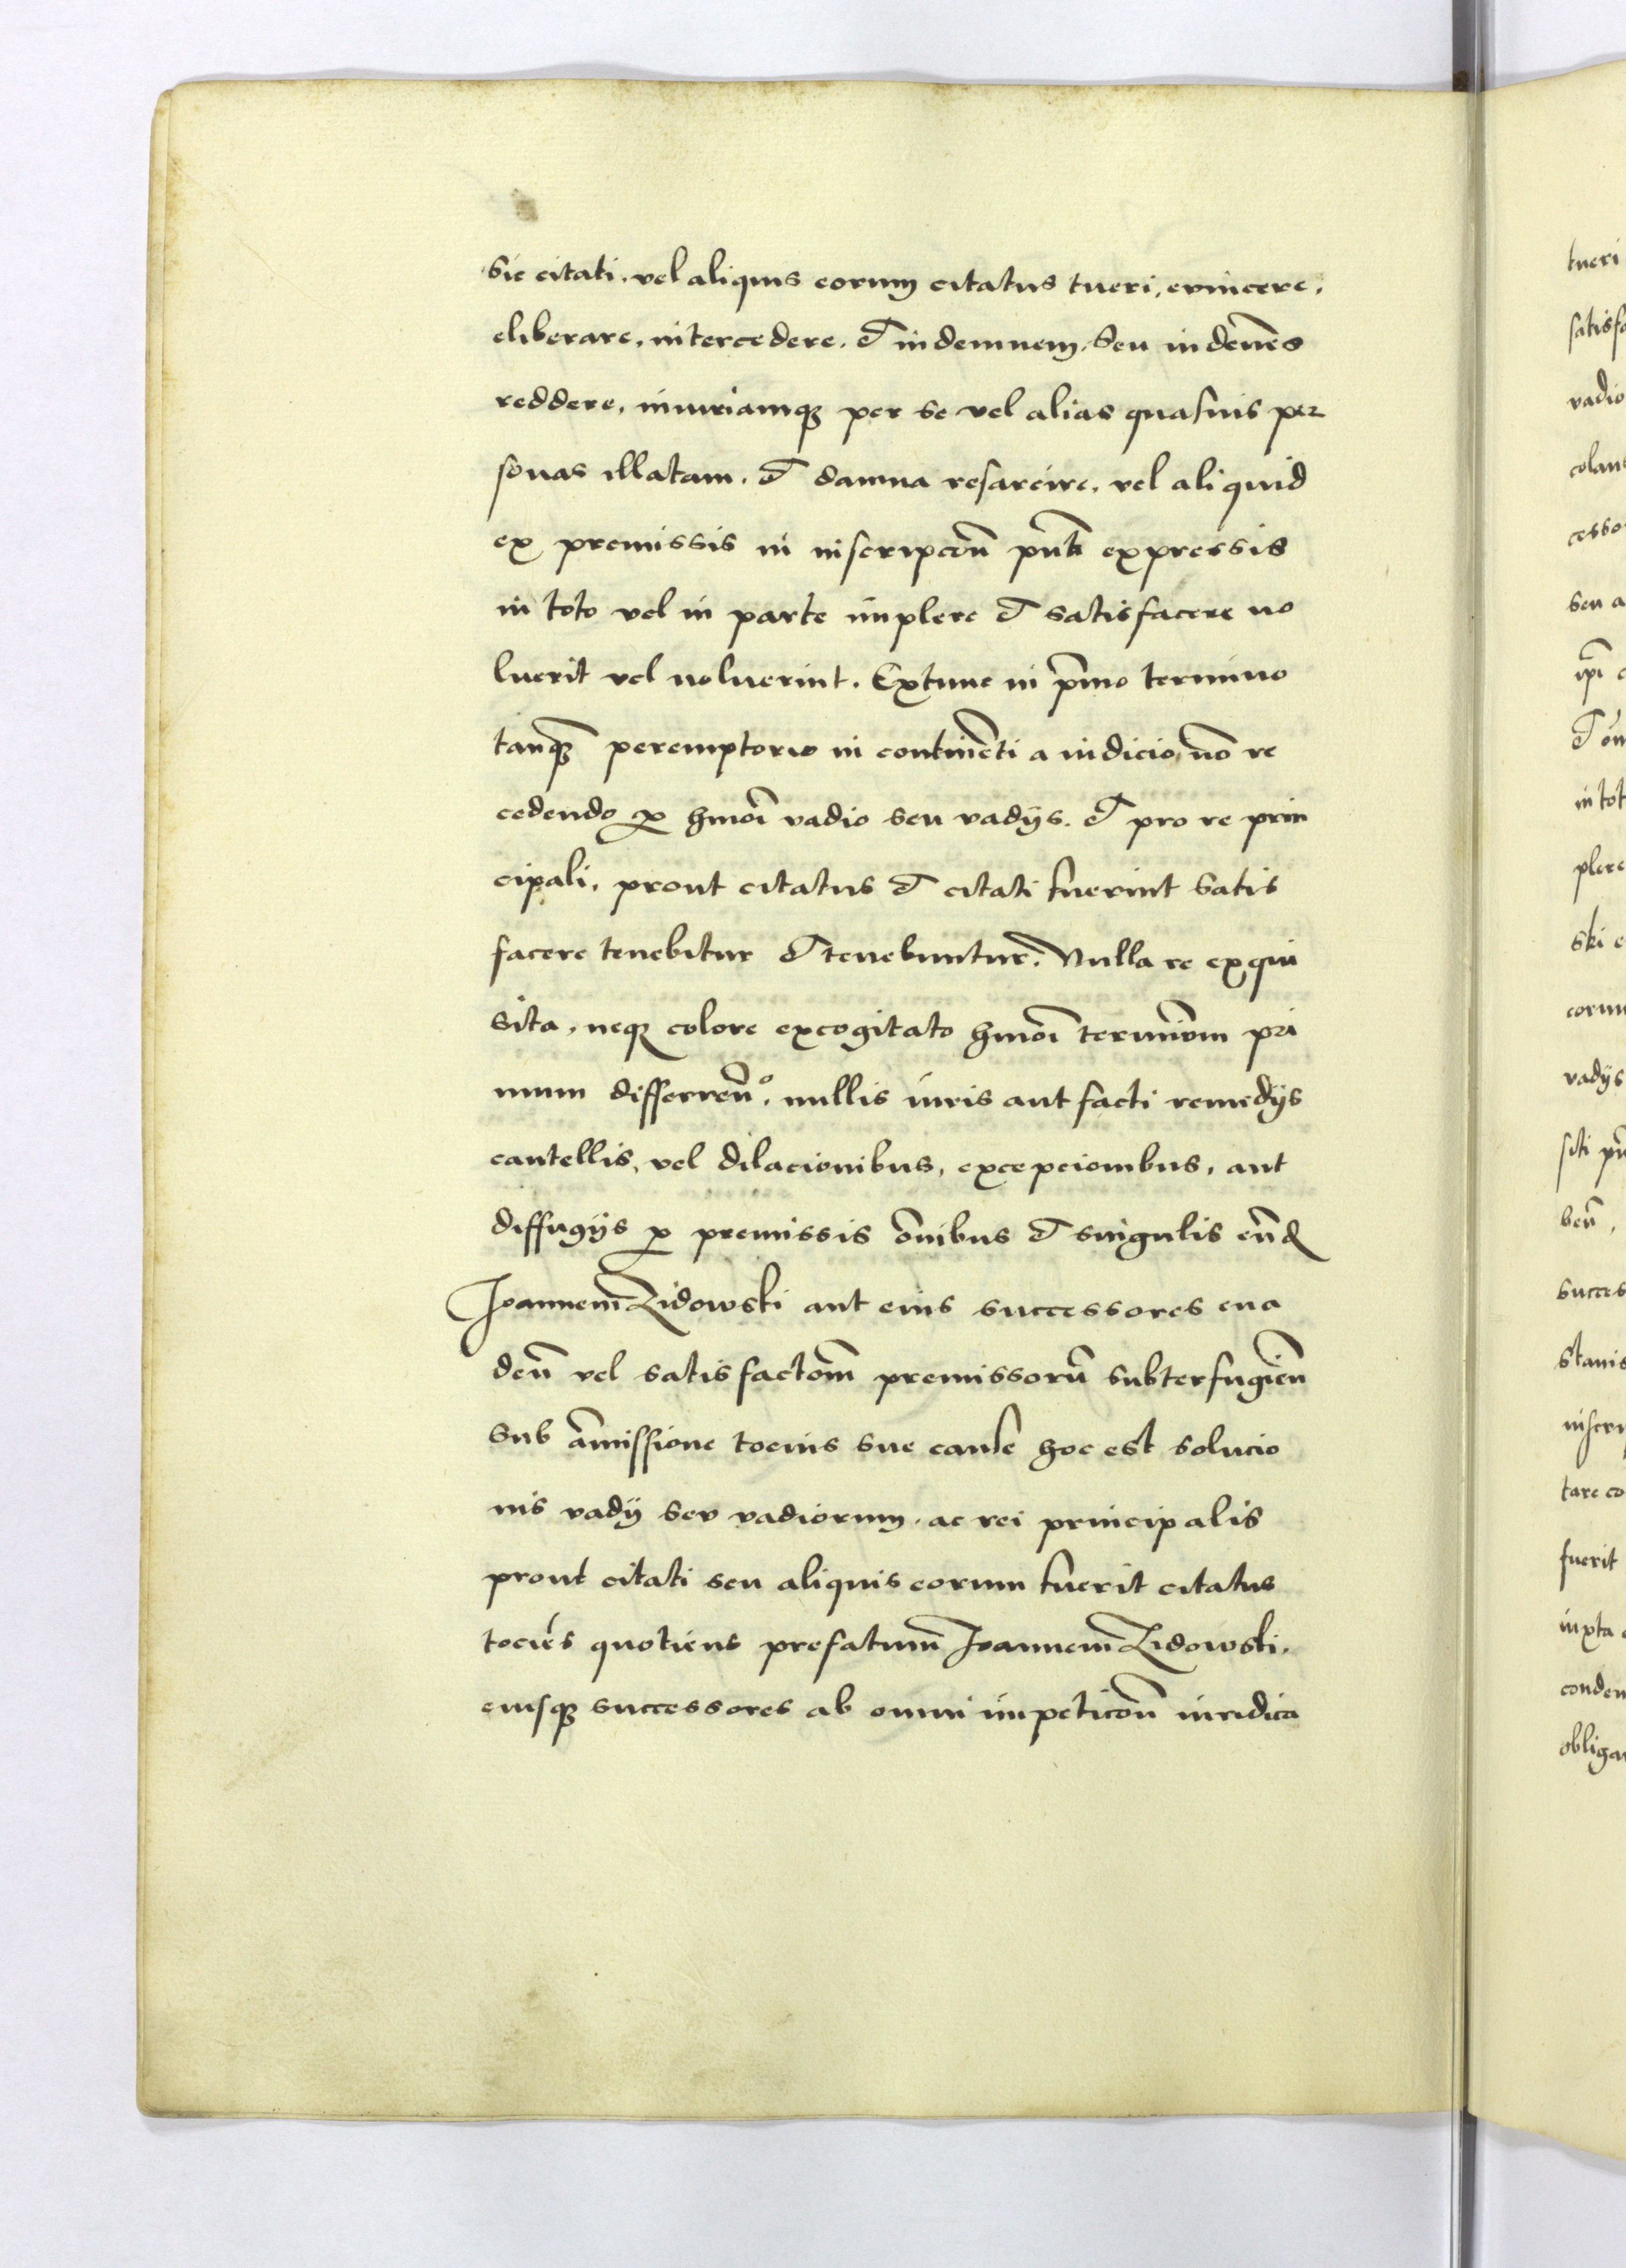 sic citati. vel aliquis eorum citatus tueri, evincere,
eliberare, intercedere. et indemnem. seu indemēs
reddere, iniuriamqꝫ per se vel alias quasuis per
sonas illatam. et damna resarcire, vel aliquid
ex premissis in inscripcōn pn̄ti expressis
in toto vel in parte implere et satisfacere no
luerit vel noluerint. Extunc in pīmo termino
tanqꝫ peremptorio in continēti a iudicio nō re
cedendo ꝓ hmōi vadio seu vadijs. et pro re prin
cipali, prout citatus et citati fuerint satis
facere tenebitur et tenebuntur. Nulla re exqui
sita, neqꝫ colore excogitato hmōi terminōm pri
mum differren̄º. nullis iuris aut facti remedijs
cautellis, vel dilacionibus, excepcionibus, aut
diffugijs ꝓ premissis ōnibus et singulis eūd
Joannem Zidowski aut eius successores eua
den̄ vel satisfactōm premissorū subterfugien̄
sub āmissione tocius sue cause hoc est solucio
nis vadij sev vadiorum. ac rei principalis
prout citati seu aliquis eorum fuerit citatus
tociēs quotiens prefatum Joannem Zidowski.
eiusqꝫ successores ab omni impeticōn iuridica
tueri
satisfa
vadio
colan
cesso
seu a
ip̄i
et ōn
in tot
plere
ski e
corum
vadijs
siti pn̄
ben̄,
succes
stanis
inscri
tare co
fuerit
iuxta
conden
obliga